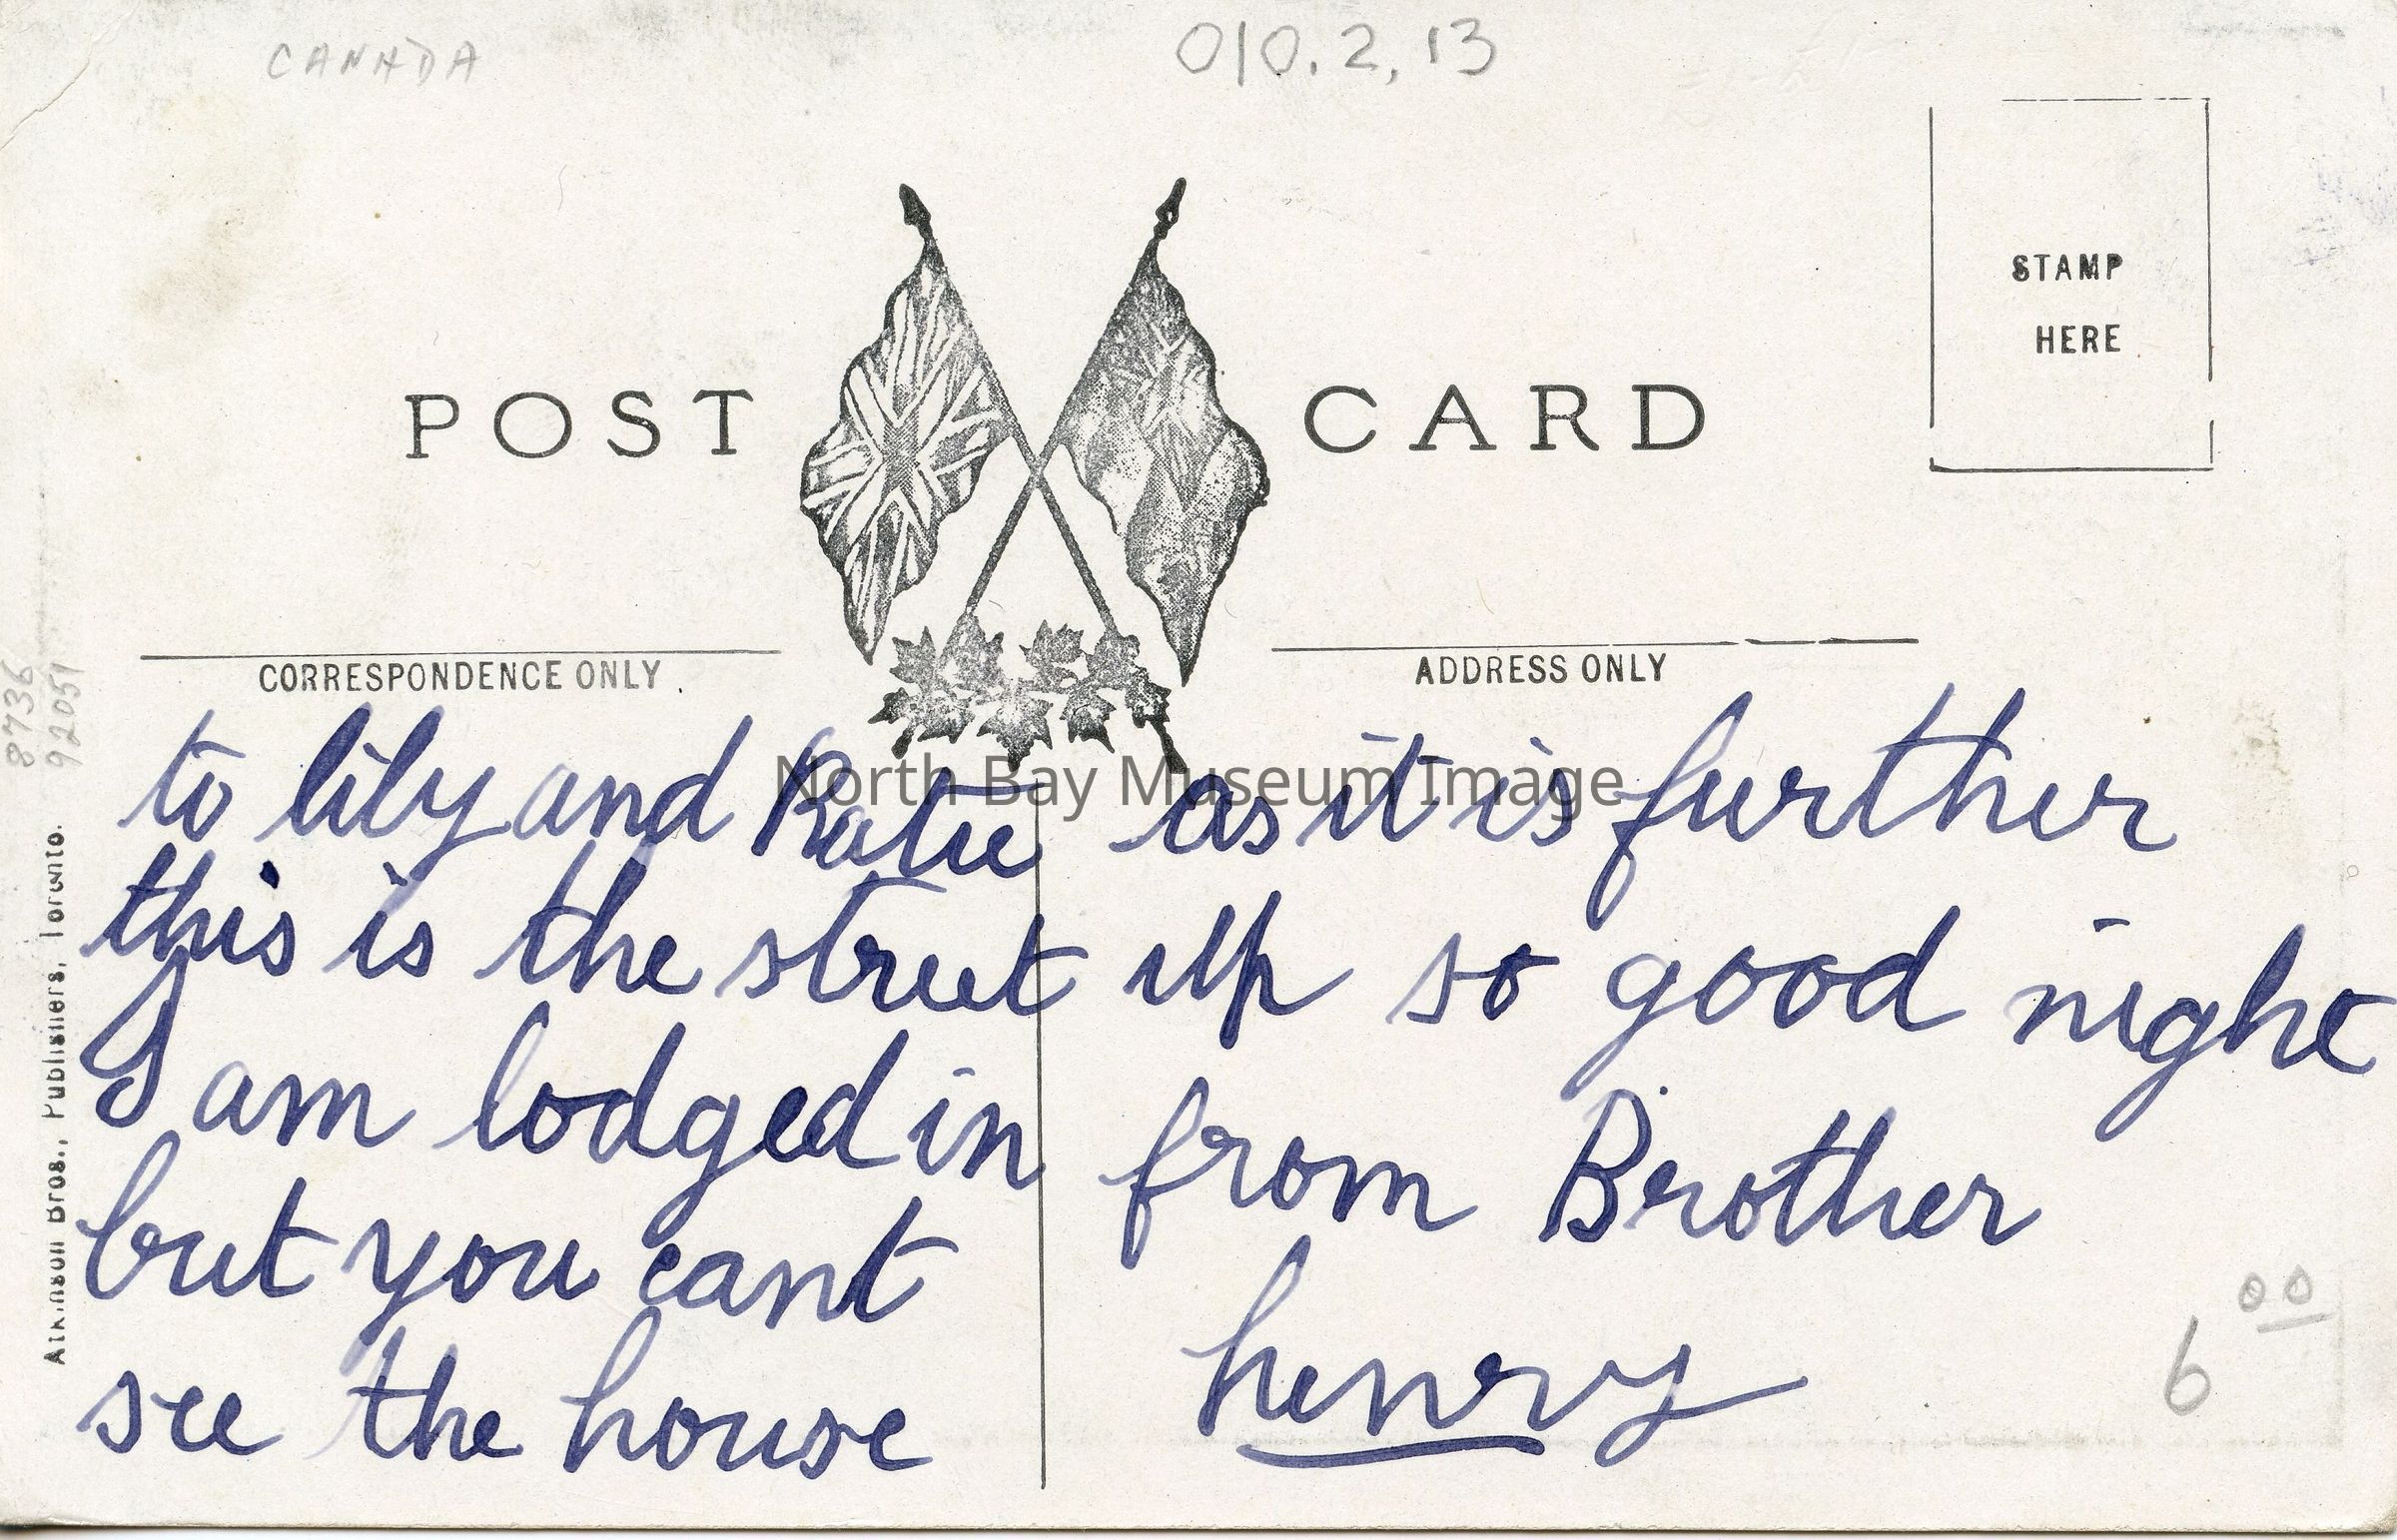 CANADA
010.2,13
STAMP
HERE
POST CARD
CORRESPONDENCE ONLY
ADDRESS ONLY
8736
92051
Atkinson Bros., Publishers, Toronto.
North Bay Museum Image
to lily and Katie
this is the street
I am lodged in
but you cant
see the house
as it is further
up so good night
from Brother
henry
6 00